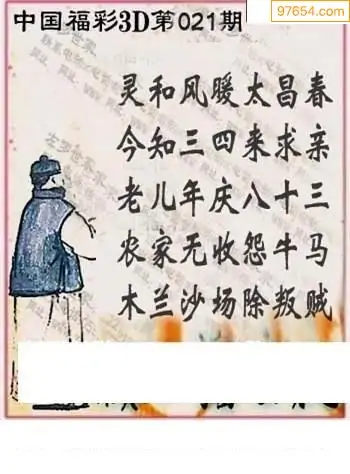 97654.com
中国福彩3D第021期
灵和风暖太昌春
今知三四来求亲
老儿年庆八十三
农家无收怨牛马
木兰沙场除叛贼